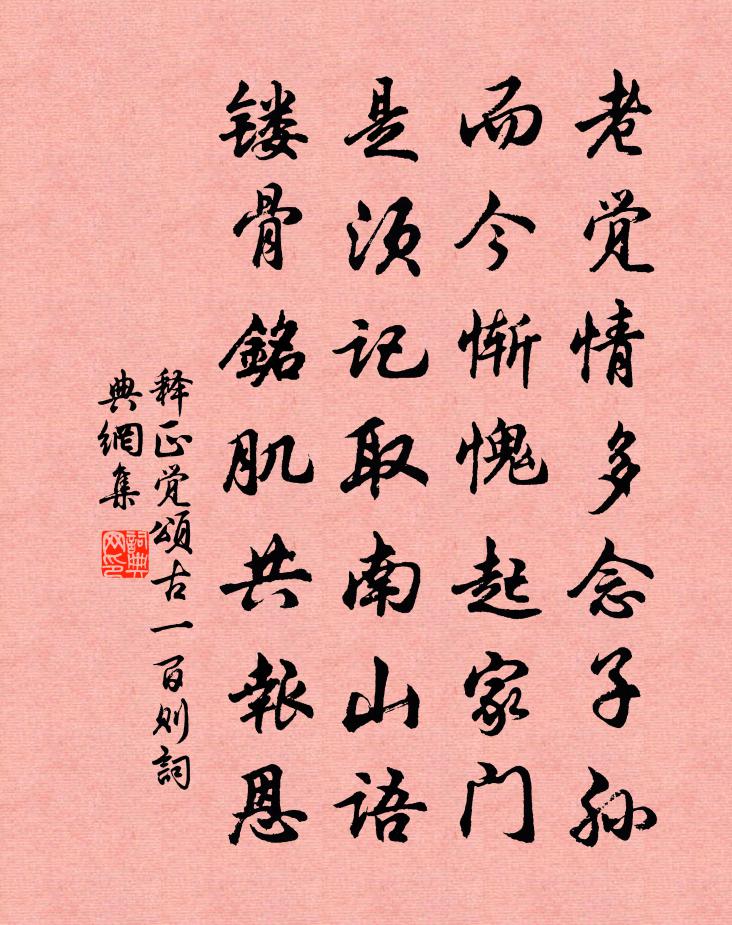 老觉情多念子孙
而今惭愧起家门
是须记取南山语
镂骨銘肌共報恩
释正觉頌古一百则詞
典網集
詞典网印